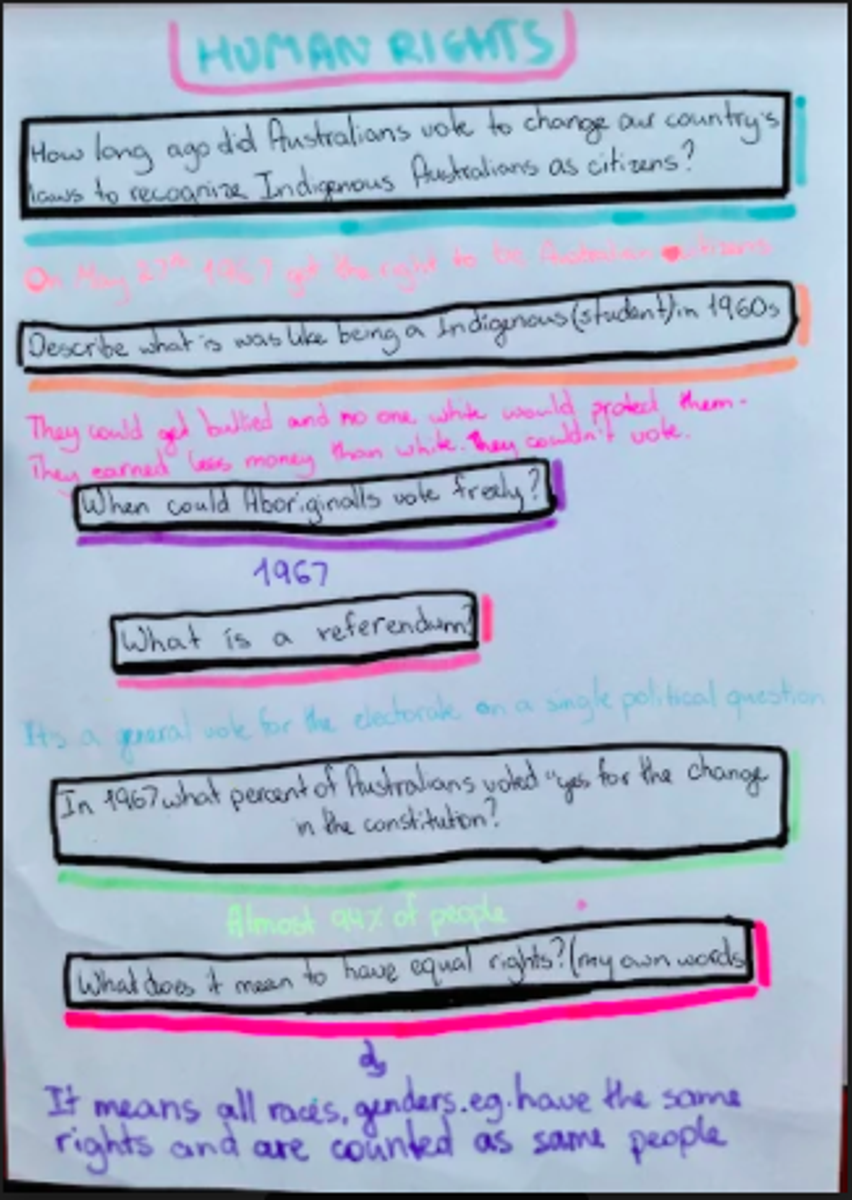 HUMAN RIGHTS
How long ago did Australians vote to change our country's
laws to recognize Indigenous Australians as citizens?
On May 27th 1967 got the right to be Australian citizens
Describe what is was like being a Indigenous (student) in 1960s
They could get bullied and no one white would protect them.
They earned less money than white. They couldn't vote.
When could Aboriginalls vote freely?
1967
What is a referendum?
It's a general vote for the electorate on a single political question
In 1967 what percent of Australians voted "yes for the change
in the constitution?
Almost 94% of people
What does it mean to have equal rights? (my own words
It means all races, genders.eg.have the same
rights and are counted as same people